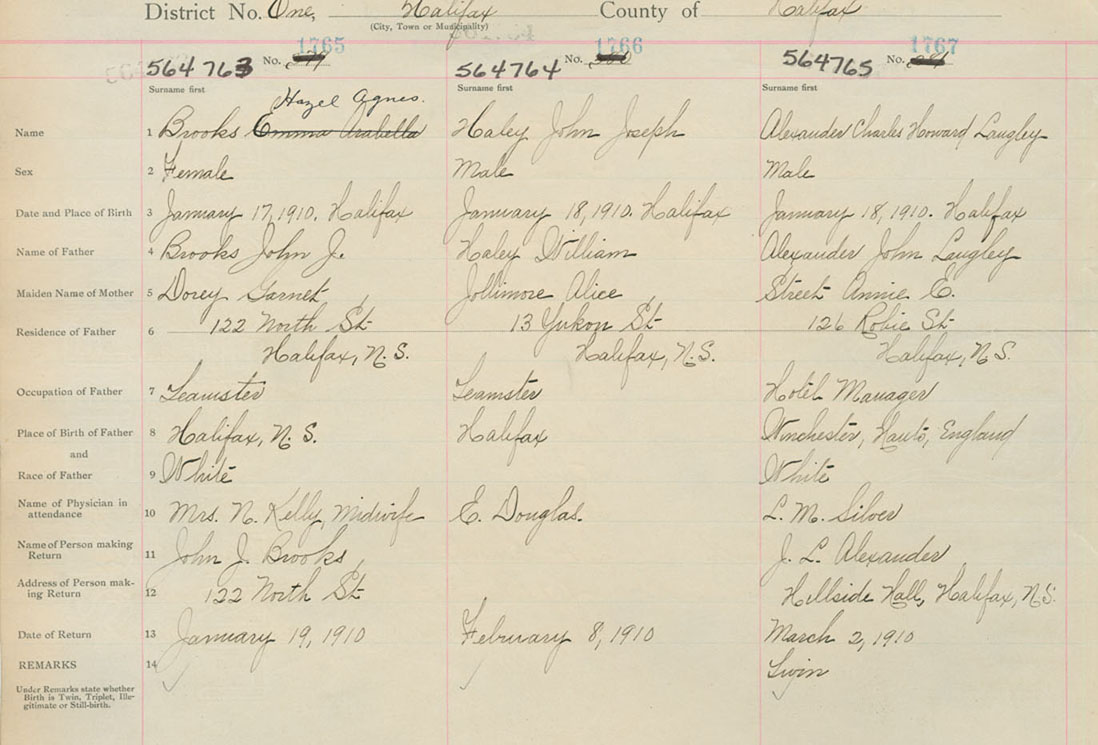 District No. One, Halifax County of Halifax
(City, Town or Municipality)
1765 1766 1767
564763 No. 564764 No. 564765 No.
Surname first Surname first Surname first
Hazel Agnes.
Name 1 Brooks Emma Arabella Haley John Joseph Alexander Charles Howard Langley
Sex 2 Female Male Male
Date and Place of Birth 3 January 17, 1910. Halifax January 18, 1910. Halifax January 18, 1910. Halifax
Name of Father 4 Brooks John J. Haley William Alexander John Langley
Maiden Name of Mother 5 Dorey Garnet Jollimore Alice Street Annie E.
Residence of Father 6 122 North St 13 Yukon St 126 Robie St
Halifax, N.S. Halifax, N.S. Halifax, N.S.
Occupation of Father 7 Teamster Teamster Hotel Manager
Place of Birth of Father 8 Halifax, N.S. Halifax Winchester, Hants, England
and
Race of Father 9 White White
Name of Physician in
attendance 10 Mrs. N. Kelly, Midwife E. Douglas. L. M. Silver
Name of Person making
Return 11 John J. Brooks J. L. Alexander
Address of Person mak-
ing Return 12 122 North St Hillside Hall, Halifax, N.S.
Date of Return 13 January 19, 1910 February 8, 1910 March 2, 1910
REMARKS 14 Twin
Under Remarks state whether
Birth is Twin, Triplet, Ille-
gitimate or Still-birth.